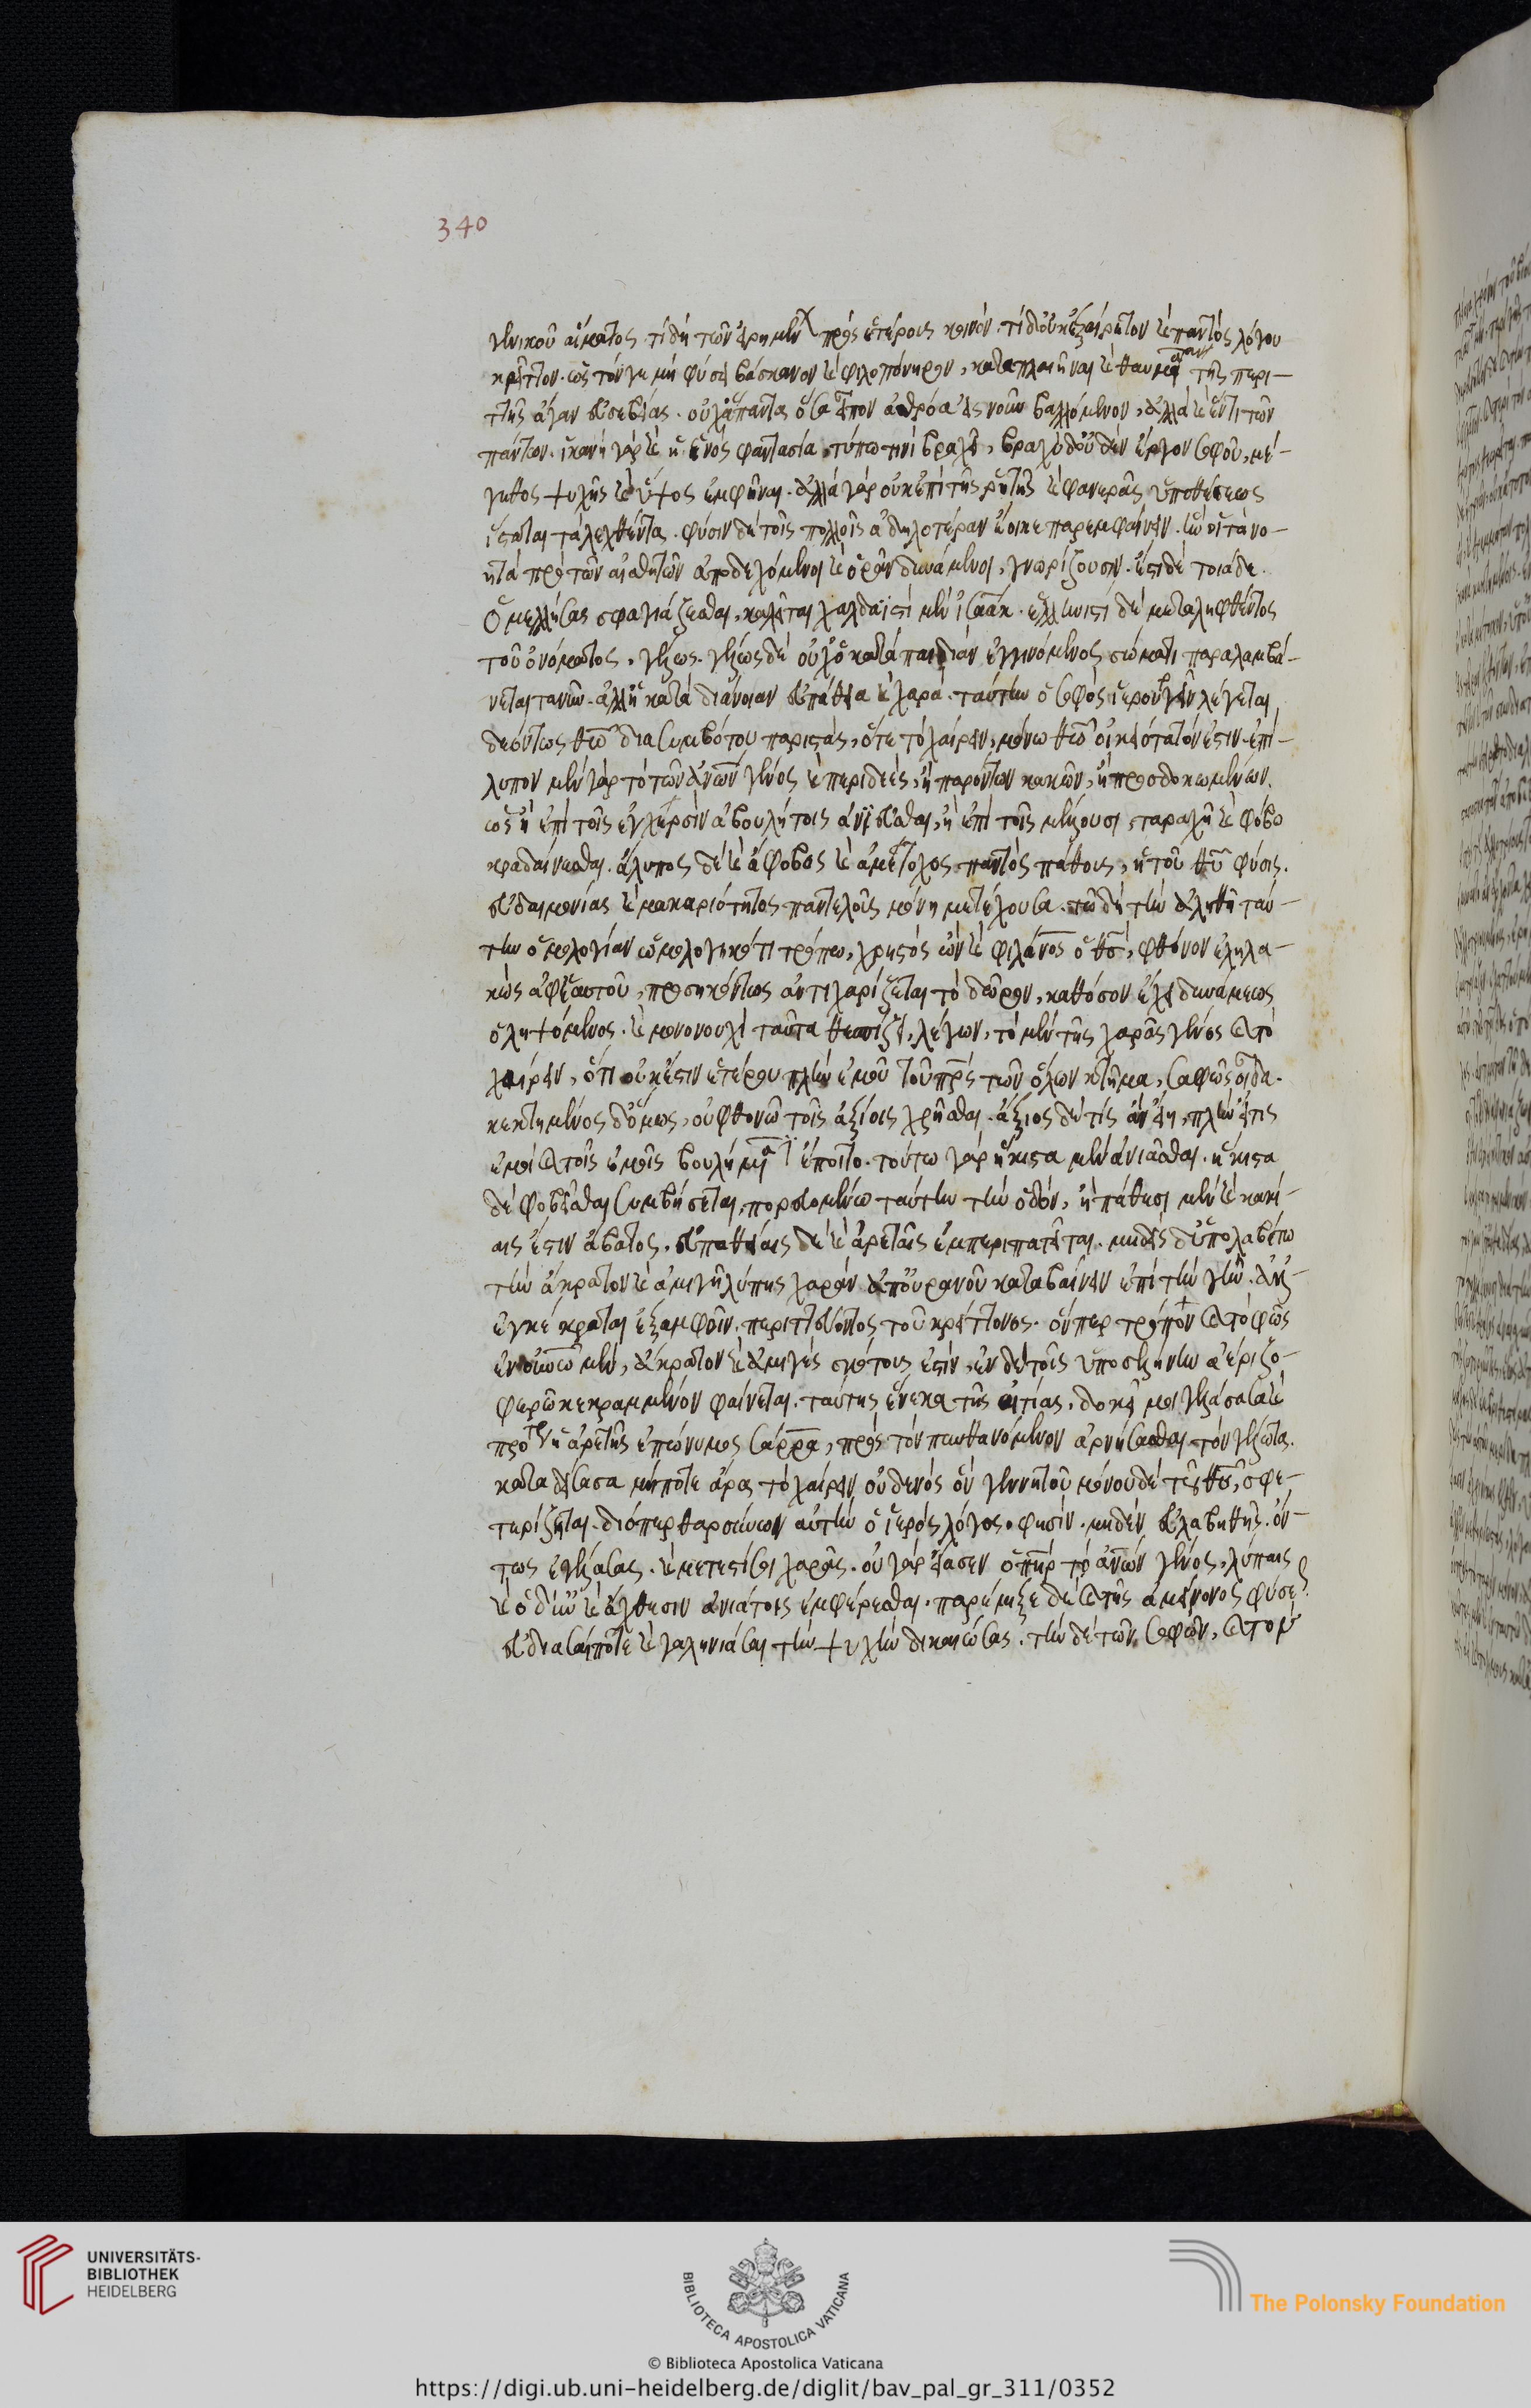 340
γενικοῦ αἵματος. τί δὴ τῶν εἰρημένων πρὸς ἑτέροις κοινόν. τί δ' οὐκ ἐξαίρετον καὶ παντὸς λόγου
κρεῖττον. ὡς τόν γε μὴ φύσει βάσκανον καὶ φιλοπόνηρον, καταπλαγῆναι καὶ θαυμάσαι ἂν τῆς περι-
ττῆς ἄγαν εὐσεβείας. οὐχ ἅπαντα ὅσα εἶπον ἀθρόα εἰς νοῦν βαλλόμενον, ἀλλὰ καὶ ἕν τι τῶν
πάντων. ἱκανὴ γὰρ καὶ ἡ ἑνὸς φαντασία τύπω τινὶ βραχεῖ, βραχὺ δ' οὐδὲν ἔργον σοφοῦ, μέ-
γεθος ψυχῆς καὶ ὕψος ἐμφῆναι. ἀλλὰ γὰρ οὐκ ἐπὶ τῆς ῥητῆς καὶ φανερᾶς ὑποθέσεως
ἵσταται τὰ λεχθέντα. φύσιν δὲ τοῖς πολλοῖς ἀδηλοτέραν ἔοικε παρεμφαίνειν. ἣν οἱ τὰ νο-
ητὰ πρὸ τῶν αἰσθητῶν ἀποδεχόμενοι καὶ ὁρᾶν δυνάμενοι, γνωρίζουσιν. ἔστι δὲ τοιάδε.
Ὁ μελλήσας σφαγιάζεσθαι, καλεῖται χαλδαϊστὶ μὲν ἰσαάκ. ἑλληνιστὶ δὲ μεταληφθέντος
τοῦ ὀνόματος, γέλως. γέλως δὲ οὐχ ὁ κατὰ παιδιὰν ἐγγινόμενος σώματι παραλαμβά-
νεται τανῦν. ἀλλ' ἡ κατὰ διάνοιαν εὐπάθεια καὶ χαρά. ταύτην ὁ σοφὸς ἱερουργεῖν λέγεται
δεόντως θεῶ διὰ συμβόλου παριστὰς, ὅτι τὸ χαίρειν, μόνω θεῶ οἰκειότατόν ἐστιν. ἐπί-
λυπον μὲν γὰρ τὸ τῶν ἀνων γένος καὶ περιδεὲς, ἢ παρόντων κακῶν, ἢ προσδοκωμένων.
ὡς ἢ ἐπὶ τοῖς ἐν χερσὶν ἀβουλήτοις ἀνιᾶσθαι, ἢ ἐπὶ τοῖς μέλλουσι ταραχῆ καὶ φόβω
κραδαίνεσθαι. ἄλυπος δὲ καὶ ἄφοβος καὶ ἀμέτοχος παντὸς πάθους, ἡ τοῦ θυ φύσις.
εὐδαιμονίας καὶ μακαριότητος παντελοῦς μόνη μετέχουσα. τῶ δὴ τὴν ἀληθῆ ταύ-
την ὁμολογίαν ὡμολογηκότι τρόπω, χρηστὸς ὢν καὶ φιλάνος ὁ θς, φθόνον ἐληλα-
κὼς ἀφ' ἑαυτοῦ, προσηκόντως ἀντιχαρίζεται τὸ δῶρον, καθόσον ἔχει δυνάμεως
ὁ ληψόμενος. καὶ μονονουχὶ ταῦτα θεσπίζει, λέγων, τὸ μὲν τῆς χαρᾶς γένος καὶ τὸ
χαίρειν, ὅτι οὐκ ἔστιν ἑτέρου πλὴν ἐμοῦ τοῦ πρς τῶν ὅλων κτῆμα, σαφῶς οἶδα.
κεκτημένος δ' ὅμως, οὐ φθονῶ τοῖς ἀξίοις χρῆσθαι. ἄξιος δὲ τίς ἂν εἴη, πλὴν εἴ τις
ἐμοὶ καὶ τοῖς ἐμοῖς βουλήμασιν ἕποιτο. τούτω γὰρ ἥκιστα μὲν ἀνιᾶσθαι. ἥκιστα
δὲ φοβεῖσθαι συμβήσεται, πορευομένω ταύτην τὴν ὁδὸν, ἣ πάθεσι μὲν καὶ κακί-
αις ἐστὶν ἄβατος. εὐπαθείαις δὲ καὶ ἀρεταῖς ἐμπεριπατεῖται. μηδεὶς δ' ὑπολαβέτω
τὴν ἄκρατον καὶ ἀμιγῆ λύπης χαρὰν ἀπ' οὐρανοῦ καταβαίνειν ἐπὶ τὴν γῆν. ἀλλ'
ἐγκέκραται ἐξ ἀμφοῖν. περιττεύοντος τοῦ κρείττονος. ὅνπερ τρόπον καὶ τὸ φῶς
ἐν οὐνῶ μὲν, ἄκρατον καὶ ἀμιγὲς σκότους ἐστὶν, ἐν δὲ τοῖς ὑπὸ σελήνην ἀέρι ζο-
φερῶ κεκραμμένον φαίνεται. ταύτης ἕνεκα τῆς αἰτίας, δοκεῖ μοι γελάσασα καὶ
πρότερον ἡ ἀρετῆς ἐπώνυμος σάρρα, πρὸς τὸν πυνθανόμενον ἀρνήσασθαι τὸν γέλωτα.
καταδείσασα μήποτε ἄρα τὸ χαίρειν οὐδενὸς ὂν γεννητοῦ μόνου δὲ τοῦ θυ, σφε-
τερίζηται. διόπερ θαρσύνων αὐτὴν ὁ ἱερὸς λόγος. φησὶν. μηδὲν εὐλαβηθῆς. ὄν-
τως ἐγέλασας. καὶ μέτεστί σοι χαρᾶς. οὐ γὰρ εἴασεν ὁ πηρ τὸ ἀνων γένος, λύπαις
καὶ ὀδύναις καὶ ἄχθεσιν ἀνιάτοις ἐμφέρεσθαι. παρέμιξε δὲ καὶ τῆς ἀμείνονος φύσεως
εὐδιάσαι ποτὲ καὶ γαληνιάσαι τὴν ψυχὴν δικαιώσας. τὴν δὲ τῶν σοφῶν, καὶ τὸ
UNIVERSITÄTS-
BIBLIOTHEK
HEIDELBERG
BIBLIOTECA APOSTOLICA VATICANA
The Polonsky Foundation
© Biblioteca Apostolica Vaticana
https://digi.ub.uni-heidelberg.de/diglit/bav_pal_gr_311/0352